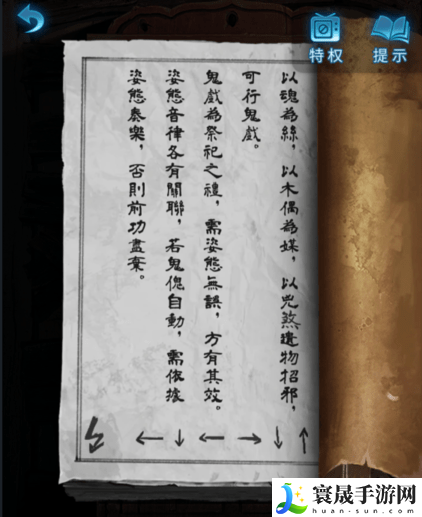 特权
提示
以魂為絲，以木偶為媒，以兇煞遺物招邪，
可行鬼戲。
鬼戲為祭祀之禮，需姿態無誤，方有其效。
姿態音律各有關聯，若鬼傀自動，需依據
姿態奏樂，否則前功盡棄。
寰晟手游网
huan-sun.com